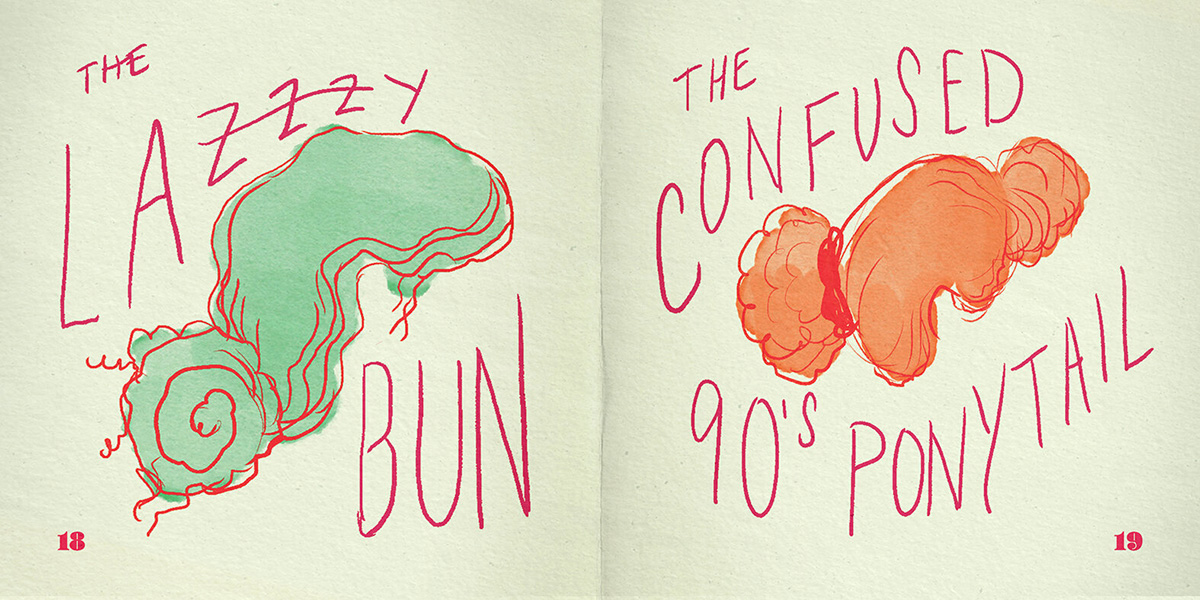 THE
LAZZZY
BUN
18
THE
CONFUSED
90's PONYTAIL
19